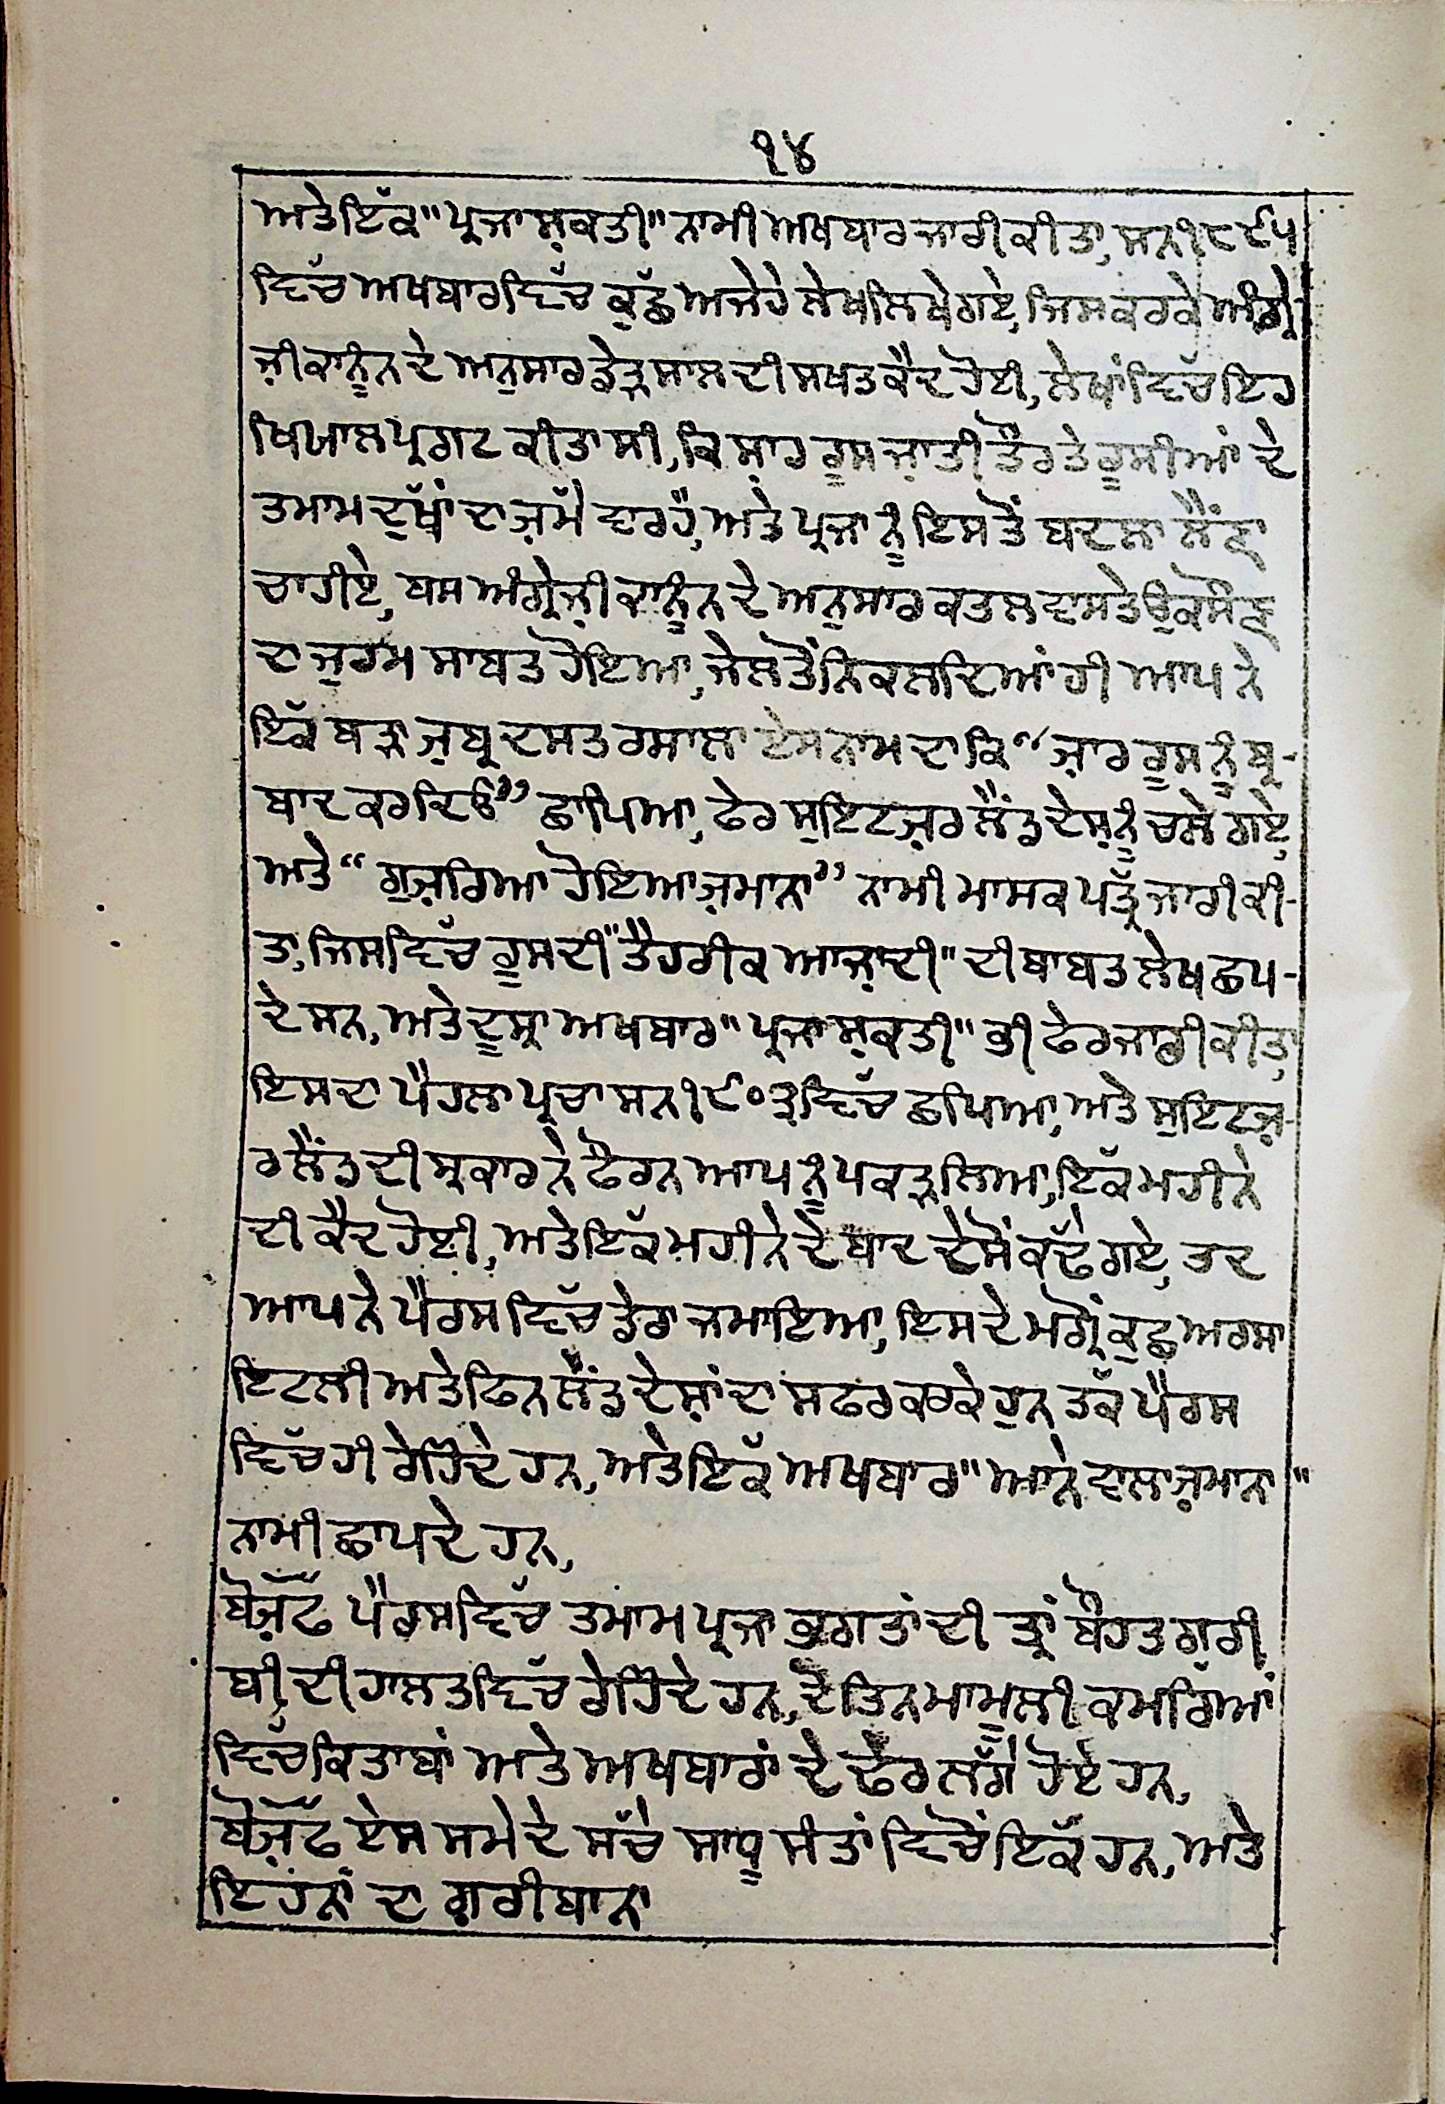 ੧੪
ਅਤੇ ਇੱਕ "ਪ੍ਰਜਾ ਸ਼ਕਤੀ" ਨਾਮੀ ਅਖਬਾਰ ਜਾਰੀ ਕੀਤਾ, ਸਨ ੧੮੯੫
ਵਿੱਚ ਅਖਬਾਰ ਵਿੱਚ ਕੁੱਛ ਅਜੇਹੇ ਲੇਖ ਲਿਖੇ ਗਏ, ਜਿਸ ਕਰਕੇ ਅੰਗ੍ਰੇ-
ਜ਼ੀ ਕਾਨੂੰਨ ਦੇ ਅਨੁਸਾਰ ਡੇੜ੍ਹ ਸਾਲ ਦੀ ਸਖਤ ਕੈਦ ਹੋਈ, ਲੇਖਾਂ ਵਿੱਚ ਇਹ
ਖਿਯਾਲ ਪ੍ਰਗਟ ਕੀਤਾ ਸੀ, ਕਿ ਸ਼ਾਹ ਰੂਸ ਜ਼ਾਤੀ ਤੌਰ ਤੇ ਰੂਸੀਆਂ ਦੇ
ਤਮਾਮ ਦੁੱਖਾਂ ਦਾ ਜ਼ੁਮੇਂ ਵਾਰ ਹੈ, ਅਤੇ ਪ੍ਰਜਾ ਨੂੰ ਇਸ ਤੋਂ ਬਦਲਾ ਲੈਂਣਾ
ਚਾਹੀਏ, ਬਸ ਅੰਗ੍ਰੇਜ਼ੀ ਕਾਨੂੰਨ ਦੇ ਅਨੁਸਾਰ ਕਤਲ ਵਾਸਤੇ ਉਕਸੌਣ
ਦਾ ਜੁਰਮ ਸਾਬਤ ਹੋਇਆ, ਜੇਲ ਤੋਂ ਨਿਕਲਦਿਆਂ ਹੀ ਆਪ ਨੇ
ਇੱਕ ਬੜਾ ਜ਼ਬ੍ਰਦਸਤ ਰਸਾਲਾ ਏਸ ਨਾਮ ਦਾ ਕਿ "ਜ਼ਾਰ ਰੂਸ ਨੂੰ ਬ੍ਰ-
ਬਾਦ ਕਰ ਦਿਓ" ਛਾਪਿਆ, ਫੇਰ ਸੁਇਟਜ਼ਰਲੈਂਡ ਦੇਸ਼ ਨੂੰ ਚਲੇ ਗਏ,
ਅਤੇ "ਗੁਜ਼ਰਿਆ ਹੋਇਆ ਜ਼ਮਾਨਾ" ਨਾਮੀ ਮਾਸਕ ਪਤ੍ਰ ਜਾਰੀ ਕੀ-
ਤਾ, ਜਿਸ ਵਿੱਚ ਰੂਸ ਦੀ "ਤੈਹਰੀਕ ਆਜ਼ਾਦੀ" ਦੀ ਬਾਬਤ ਲੇਖ ਛਪ-
ਦੇ ਸਨ, ਅਤੇ ਦੂਸ੍ਰਾ ਅਖਬਾਰ "ਪ੍ਰਜਾ ਸ਼ਕਤੀ" ਭੀ ਫੇਰ ਜਾਰੀ ਕੀਤਾ,
ਇਸ ਦਾ ਪੈਹਲਾ ਪ੍ਰਚਾ ਸਨ ੧੯੦੩ ਵਿੱਚ ਛਪਿਆ, ਅਤੇ ਸੁਇਟਜ਼-
ਰਲੈਂਡ ਦੀ ਸ੍ਰਕਾਰ ਨੇ ਫੌਰਨ ਆਪ ਨੂੰ ਪਕੜ ਲਿਆ, ਇੱਕ ਮਹੀਨੇ
ਦੀ ਕੈਦ ਹੋਈ, ਅਤੇ ਇੱਕ ਮਹੀਨੇ ਦੇ ਬਾਦ ਦੇਸੋਂ ਕੱਢੇ ਗਏ, ਤਦ
ਆਪ ਨੇ ਪੈਰਸ ਵਿੱਚ ਡੇਰਾ ਜਮਾਇਆ, ਇਸ ਦੇ ਮਗ੍ਰੋਂ ਕੁਛ ਅਰਸਾ
ਇਟਲੀ ਅਤੇ ਫਿਨਲੈਂਡ ਦੇਸ਼ਾਂ ਦਾ ਸਫਰ ਕਰਕੇ ਹੁਨ ਤੱਕ ਪੈਰਸ
ਵਿੱਚ ਹੀ ਰੇਹਿੰਦੇ ਹਨ, ਅਤੇ ਇੱਕ ਅਖਬਾਰ "ਆਨੇ ਵਾਲਾ ਜ਼ਮਾਨਾ"
ਨਾਮੀ ਛਾਪਦੇ ਹਨ,
ਬੋਜ਼ੱਫ ਪੈਰਸ ਵਿੱਚ ਤਮਾਮ ਪ੍ਰਜਾ ਭਗਤਾਂ ਦੀ ਤ੍ਰਾਂ ਬੌਹਤ ਗ਼ਰੀ
ਬੀ ਦੀ ਹਾਲਤ ਵਿੱਚ ਰੇਹਿੰਦੇ ਹਨ, ਦੋ ਤਿਨ ਮਾਮੂਲੀ ਕਮਰਿਆਂ
ਵਿੱਚ ਕਿਤਾਬਾਂ ਅਤੇ ਅਖਬਾਰਾਂ ਦੇ ਢੇਰ ਲੱਗੇ ਹੋਏ ਹਨ,
ਬੋਜ਼ੱਫ ਏਸ ਸਮੇ ਦੇ ਸੱਚੇ ਸਾਧੂ ਸੰਤਾਂ ਵਿਚੋਂ ਇੱਕ ਹਨ, ਅਤੇ
ਇਹਨਾਂ ਦਾ ਗ਼ਰੀਬਾਨਾ